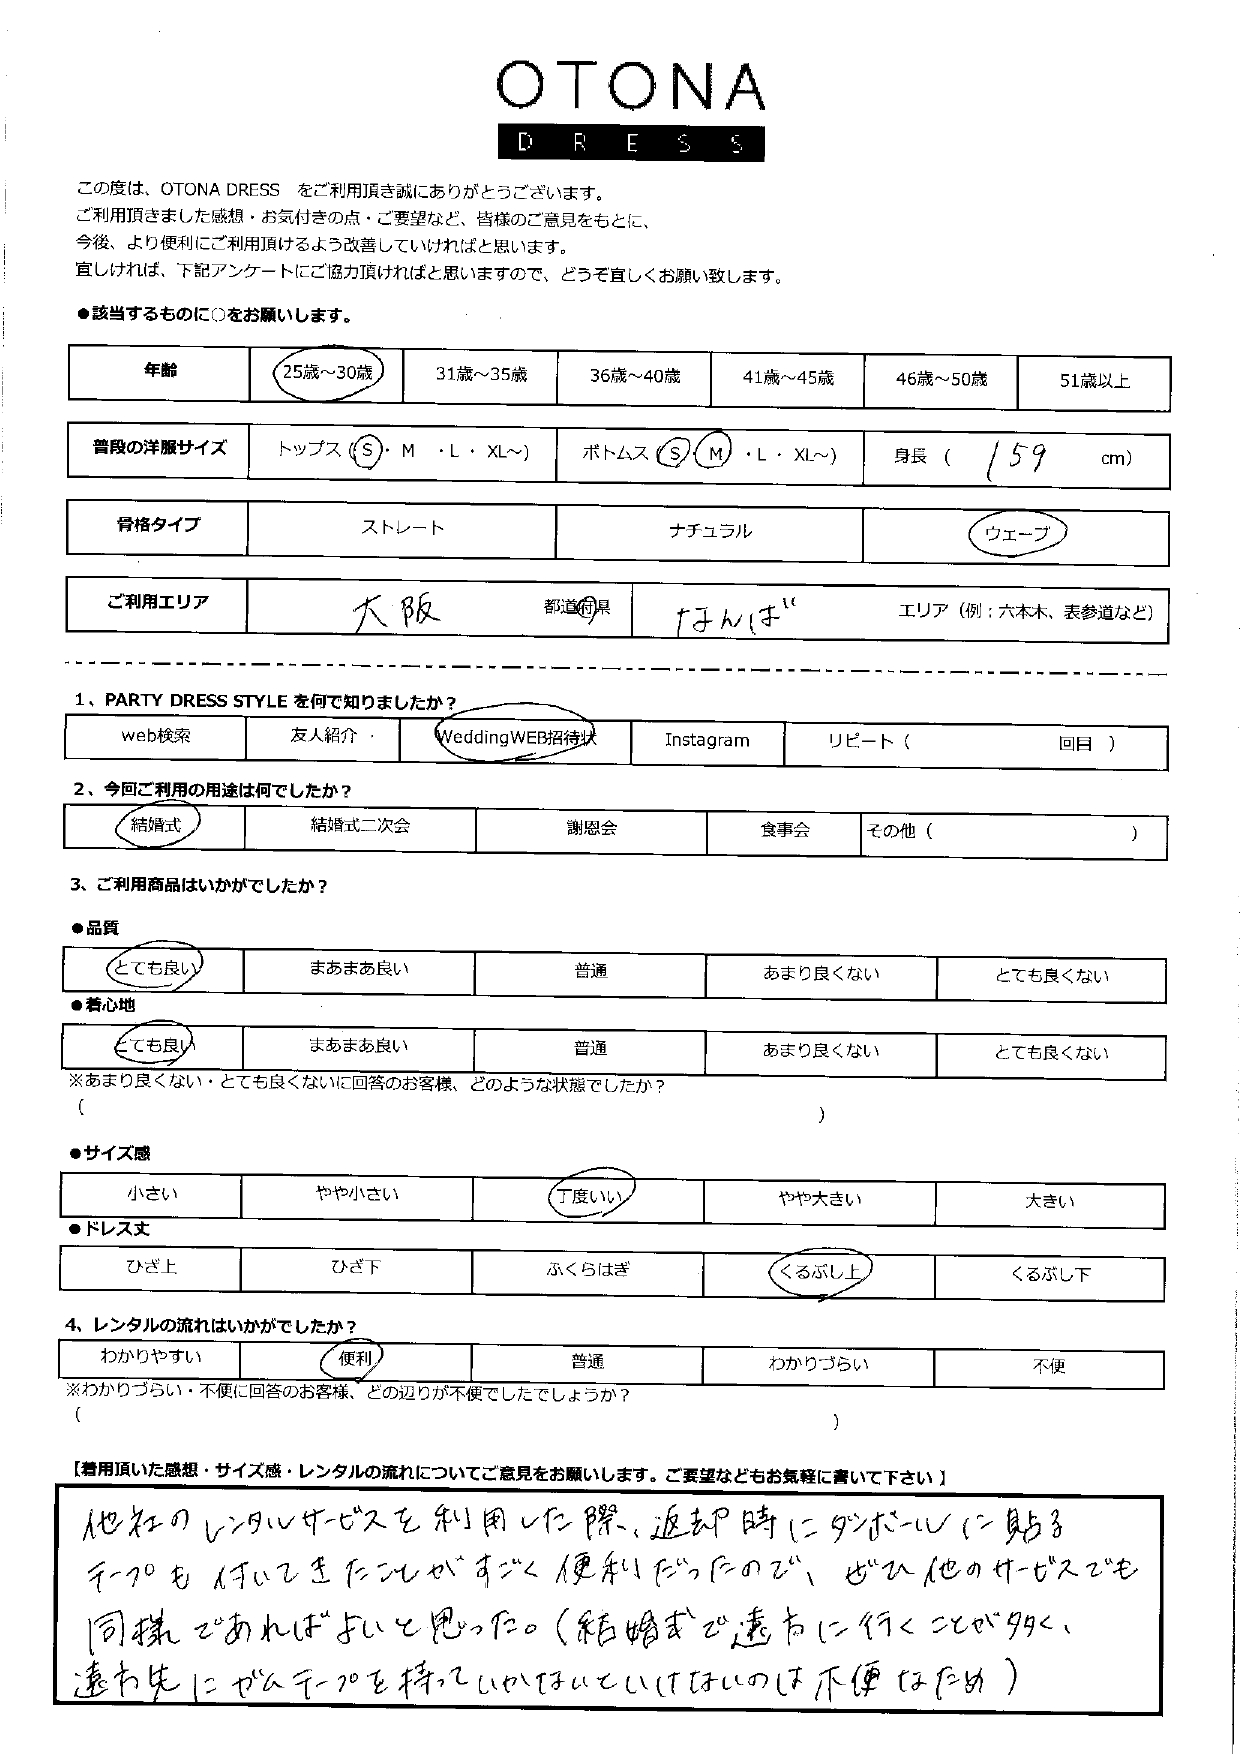 OTONA
DRESS
この度は、OTONA DRESS　をご利用頂き誠にありがとうございます。
ご利用頂きました感想・お気付きの点・ご要望など、皆様のご意見をもとに、
今後、より便利にご利用頂けるよう改善していければと思います。
宜しければ、下記アンケートにご協力頂ければと思いますので、どうぞ宜しくお願い致します。
●該当するものに○をお願いします。
年齢 25歳～30歳 31歳～35歳 36歳～40歳 41歳～45歳 46歳～50歳 51歳以上
普段の洋服サイズ トップス（S・M ・L・XL～） ボトムス（S・M ・L・XL～） 身長（ 159 cm）
骨格タイプ ストレート ナチュラル ウェーブ
ご利用エリア 大阪 都道府県 なんば エリア（例：六本木、表参道など）
1、PARTY DRESS STYLE を何で知りましたか？
web検索 友人紹介 WeddingWEB招待状 Instagram リピート（ 回目 ）
2、今回ご利用の用途は何でしたか？
結婚式 結婚式二次会 謝恩会 食事会 その他（ ）
3、ご利用商品はいかがでしたか？
●品質
とても良い まあまあ良い 普通 あまり良くない とても良くない
●着心地
とても良い まあまあ良い 普通 あまり良くない とても良くない
※あまり良くない・とても良くないに回答のお客様、どのような状態でしたか？
（ ）
●サイズ感
小さい やや小さい 丁度いい やや大きい 大きい
●ドレス丈
ひざ上 ひざ下 ふくらはぎ くるぶし上 くるぶし下
4、レンタルの流れはいかがでしたか？
わかりやすい 便利 普通 わかりづらい 不便
※わかりづらい・不便に回答のお客様、どの辺りが不便でしたでしょうか？
（ ）
【着用頂いた感想・サイズ感・レンタルの流れについてご意見をお願いします。ご要望などもお気軽に書いて下さい】
他社のレンタルサービスを利用した際、返却時にダンボールに貼る
テープも付いてきたことがすごく便利だったので、ぜひ他のサービスでも
同様であればよいと思った。（結婚式で遠方に行くことが多く、
遠方先にガムテープを持っていかないといけないのは不便なため）